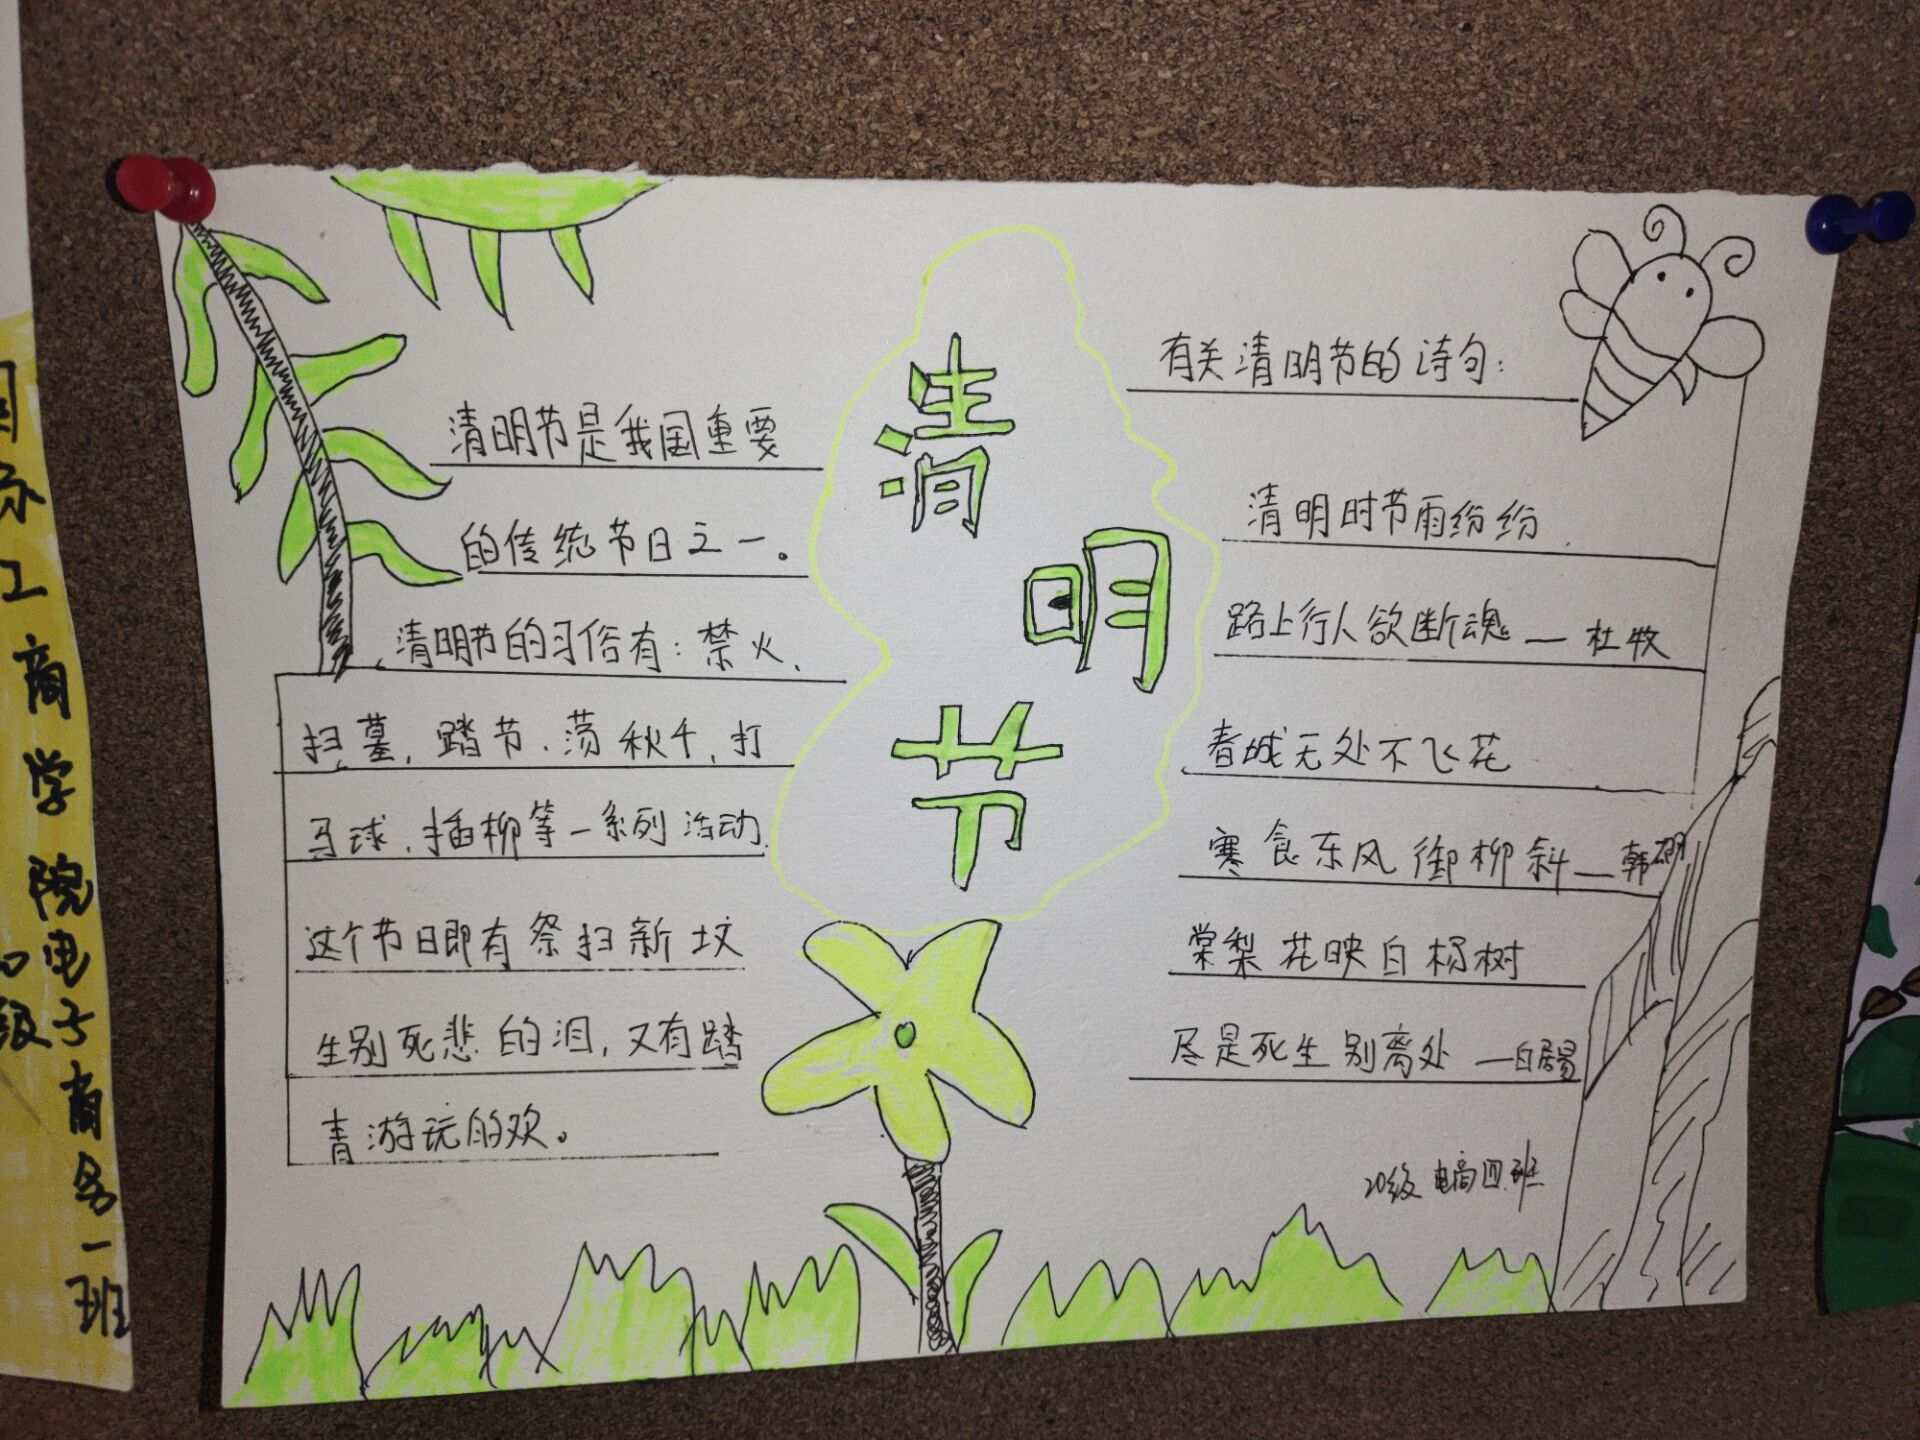 清明节
清明节是我国重要
的传统节日之一。
清明节的习俗有：禁火、
扫墓，踏节、荡秋千，打
马球、插柳等一系列活动.
这个节日即有祭扫新坟
生别死悲的泪，又有踏
青游玩的欢。
有关清明节的诗句：
清明时节雨纷纷
路上行人欲断魂 — 杜牧
春城无处不飞花
寒食东风御柳斜 — 韩翃
棠梨花映白杨树
尽是死生别离处 — 白居易
20级 电商四班
工商学院电子商务一班
级